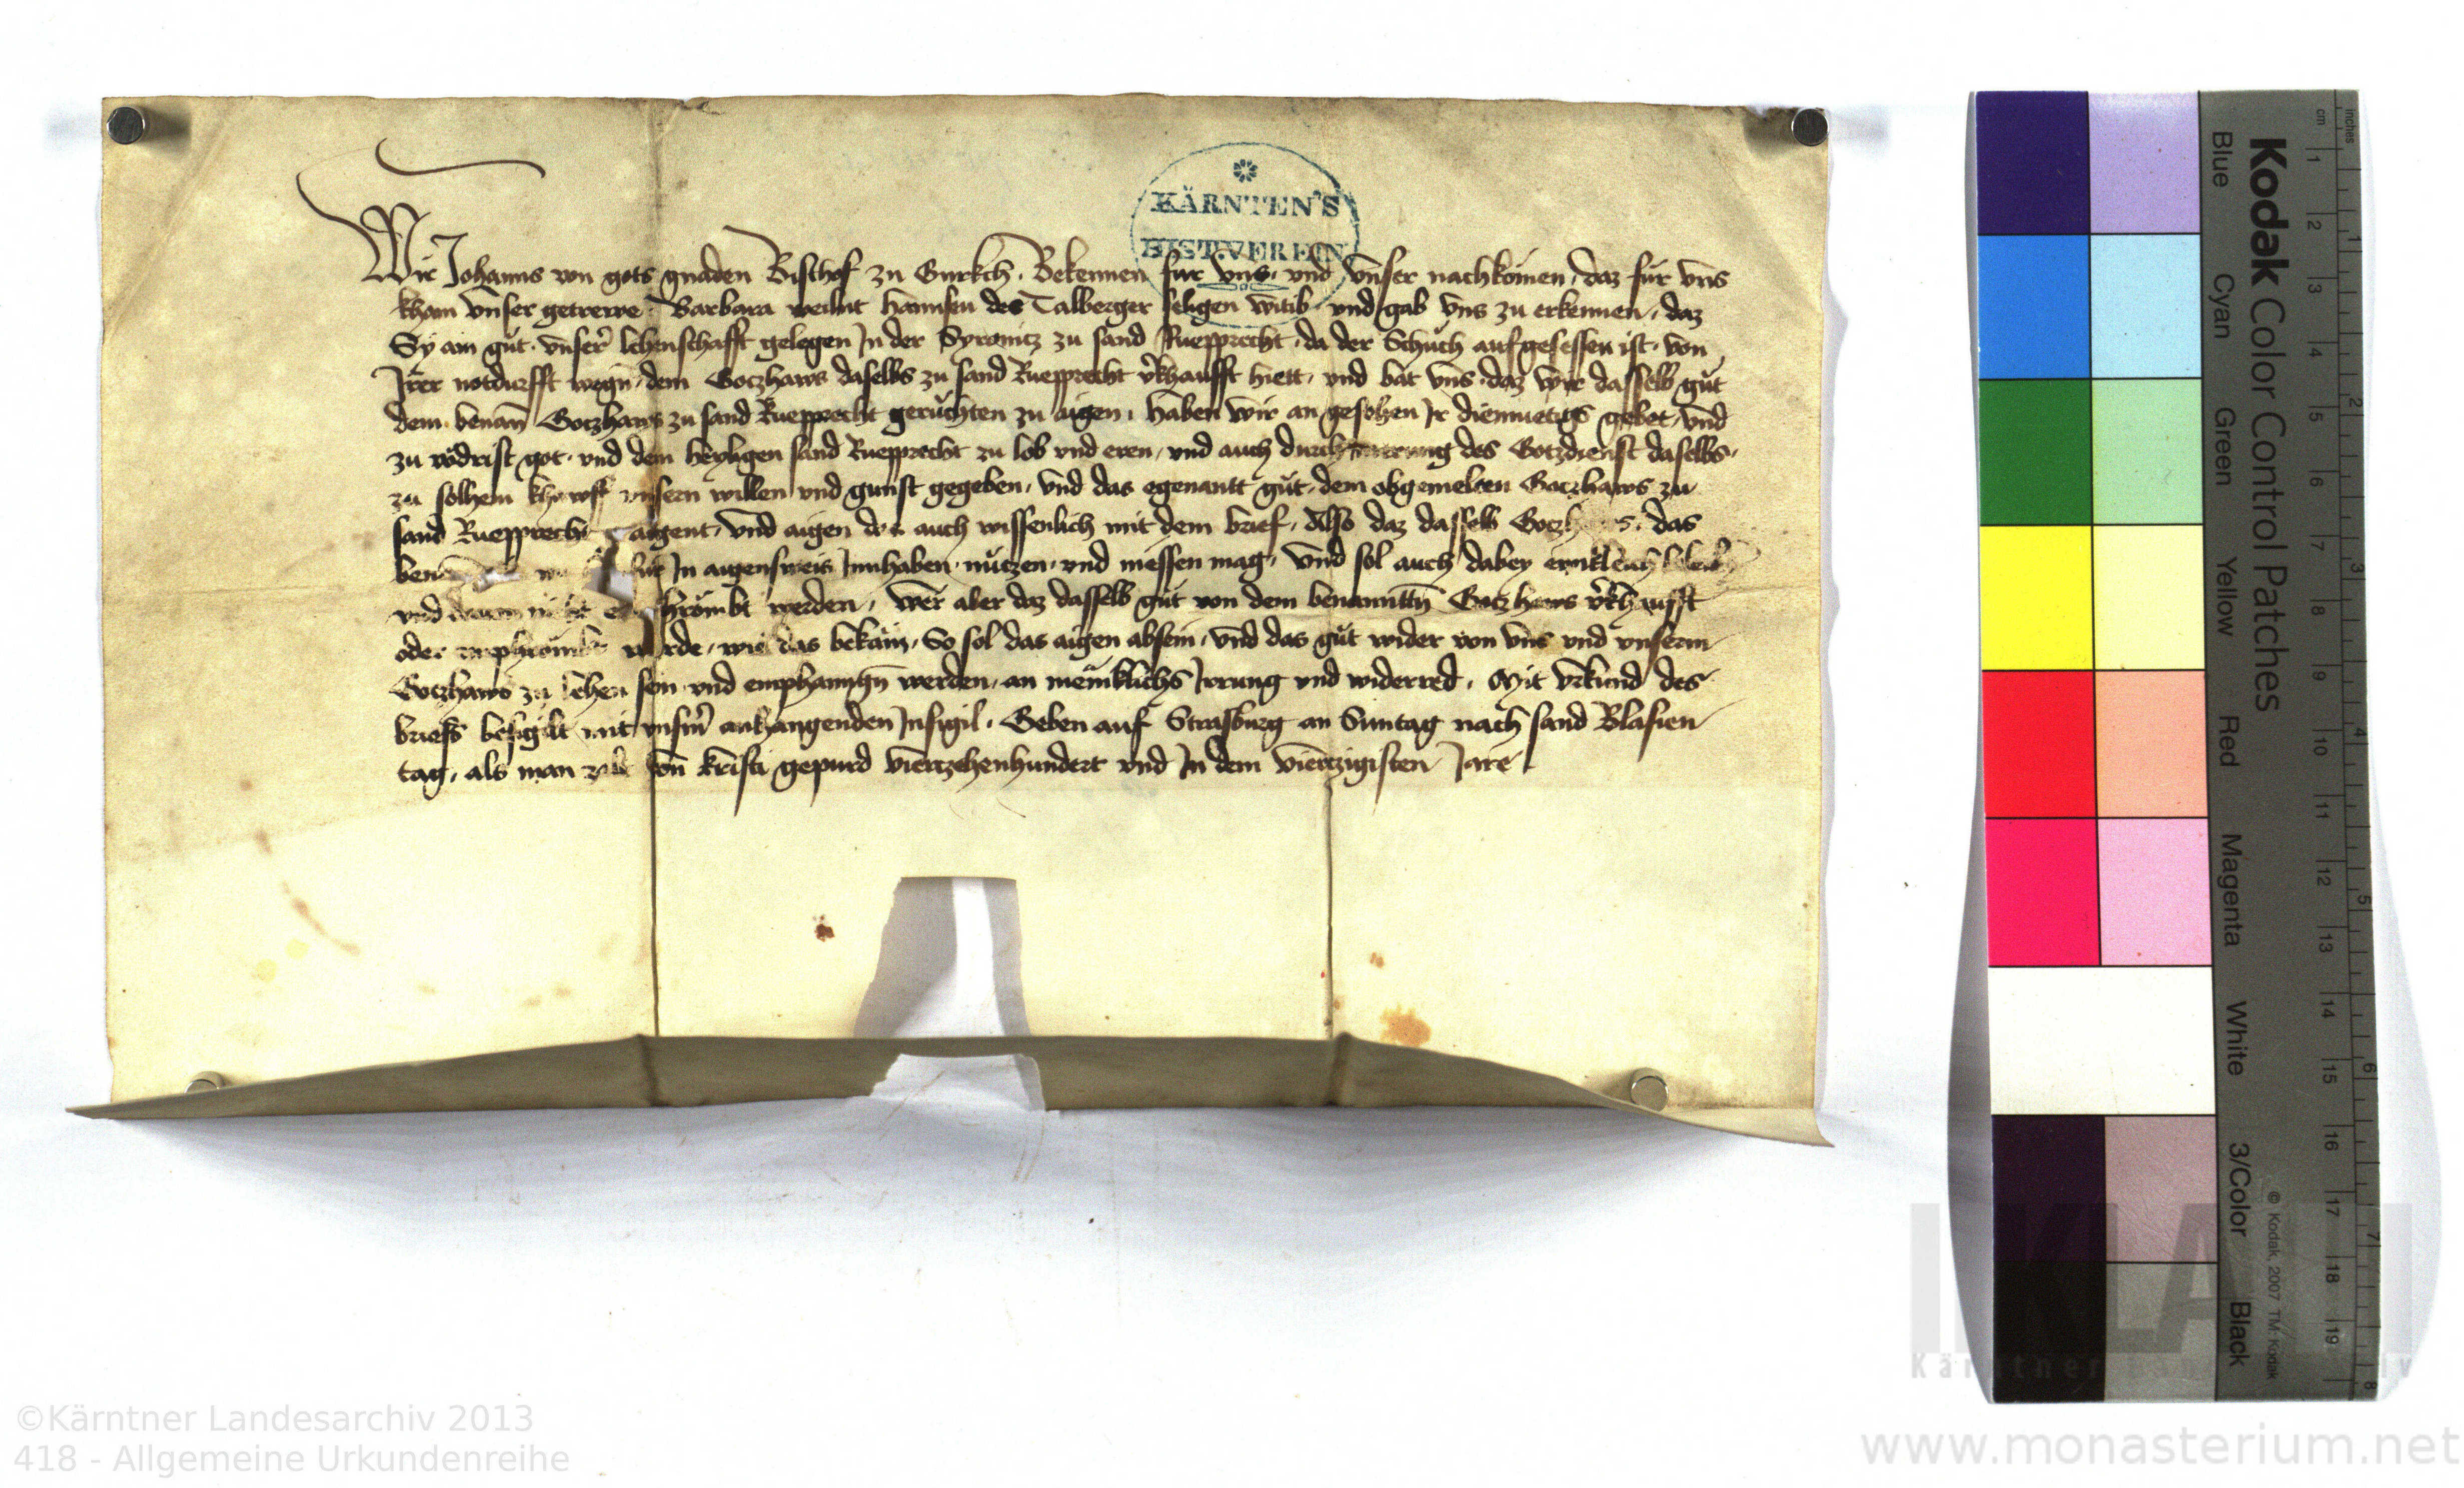 KÄRNTEN'S
HIST. VEREIN
Wir Johanns von gots gnaden Bischof zu Gurkch. Bekennen fur vns. vnd vnser nachkomen, daz fur vns
kham vnser getrewe Barbara weilnt Hannsen des Talberger seligen witib vnd gab vns zu erkennen, daz
Sy ain gůt vnser̄ lehenschafft gelegen In der Syromitz zu sand Ruepprecht, da der Schůch aufgesessen ist, von
Irer notdurfft wegn̄, dem Gotzhaws daselbs zu sand Ruepprecht v̄khaufft hiett, vnd bat vns, daz wir dasselb gůt
dem benan̄ Gotzhaws zu sand Ruepprecht gerůchten zu aigen. haben wir an gesehen Ir diemuetigs gebet, vnd
zu vodrist got, vnd dem heyligen sand Ruepprecht zu lob vnd eren, vnd auch durch des Gotzdienst daselbs,
zu solhem khawff vnsern willen vnd gunst gegeben, vnd das egenantt gůt, dem obgemelten Gotzhaws zu
sand Ruepprecht geaigent, vnd aigen de auch wissenlich mit dem brief, Also daz dasselb Gotzhaws, das
fur In aigensweis Innhaben, nůtzen, vnd niessen mag, vnd sol auch dabey
vnd nicht werden, wer aber daz dasselb gůt von dem benanntn̄ Gotzhaws v̄khaufft
oder wurde, wie das bekäm, So sol das aigen absein, vnd das gůt wider von vns vnd vnserm
Gotzhaws zu lehen sein vnd emphanngn̄ werden, an menikliches Irrung vnd widerred. Mit vrkund des
briefs besigilt mit vnsm̄ anhangenden Insigil. Geben auf Strasburg an Suntag nach sand Blasien
tag, als man zalt von kristi gepurd vierczehenhundert vnd In dem viertzigisten Jare.
Kodak Color Control Patches
Blue
Cyan
Green
Yellow
Red
Magenta
White
3/Color
Black
© Kodak, 2007 TM: Kodak
inches 1 2 3 4 5 6 7 8
cm 1 2 3 4 5 6 7 8 9 10 11 12 13 14 15 16 17 18 19
KLA
Kärntner Landesarchiv
©Kärntner Landesarchiv 2013
418 - Allgemeine Urkundenreihe
www.monasterium.net